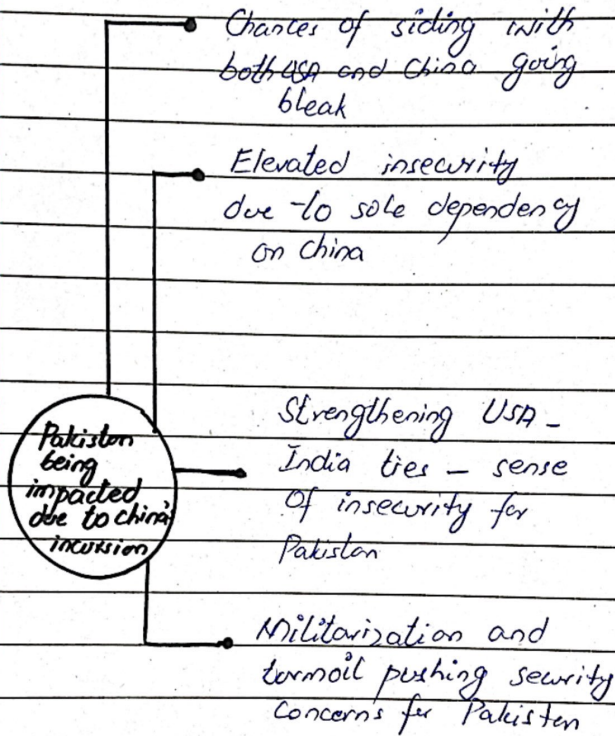 Chances of siding with
both USA and China going
bleak
Elevated insecurity
due to sole dependency
on China
Pakistan
being
impacted
due to china's
incursion
Strengthening USA -
India ties - sense
Of insecurity for
Pakistan
Militarization and
tormoil pushing security
Concerns for Pakistan